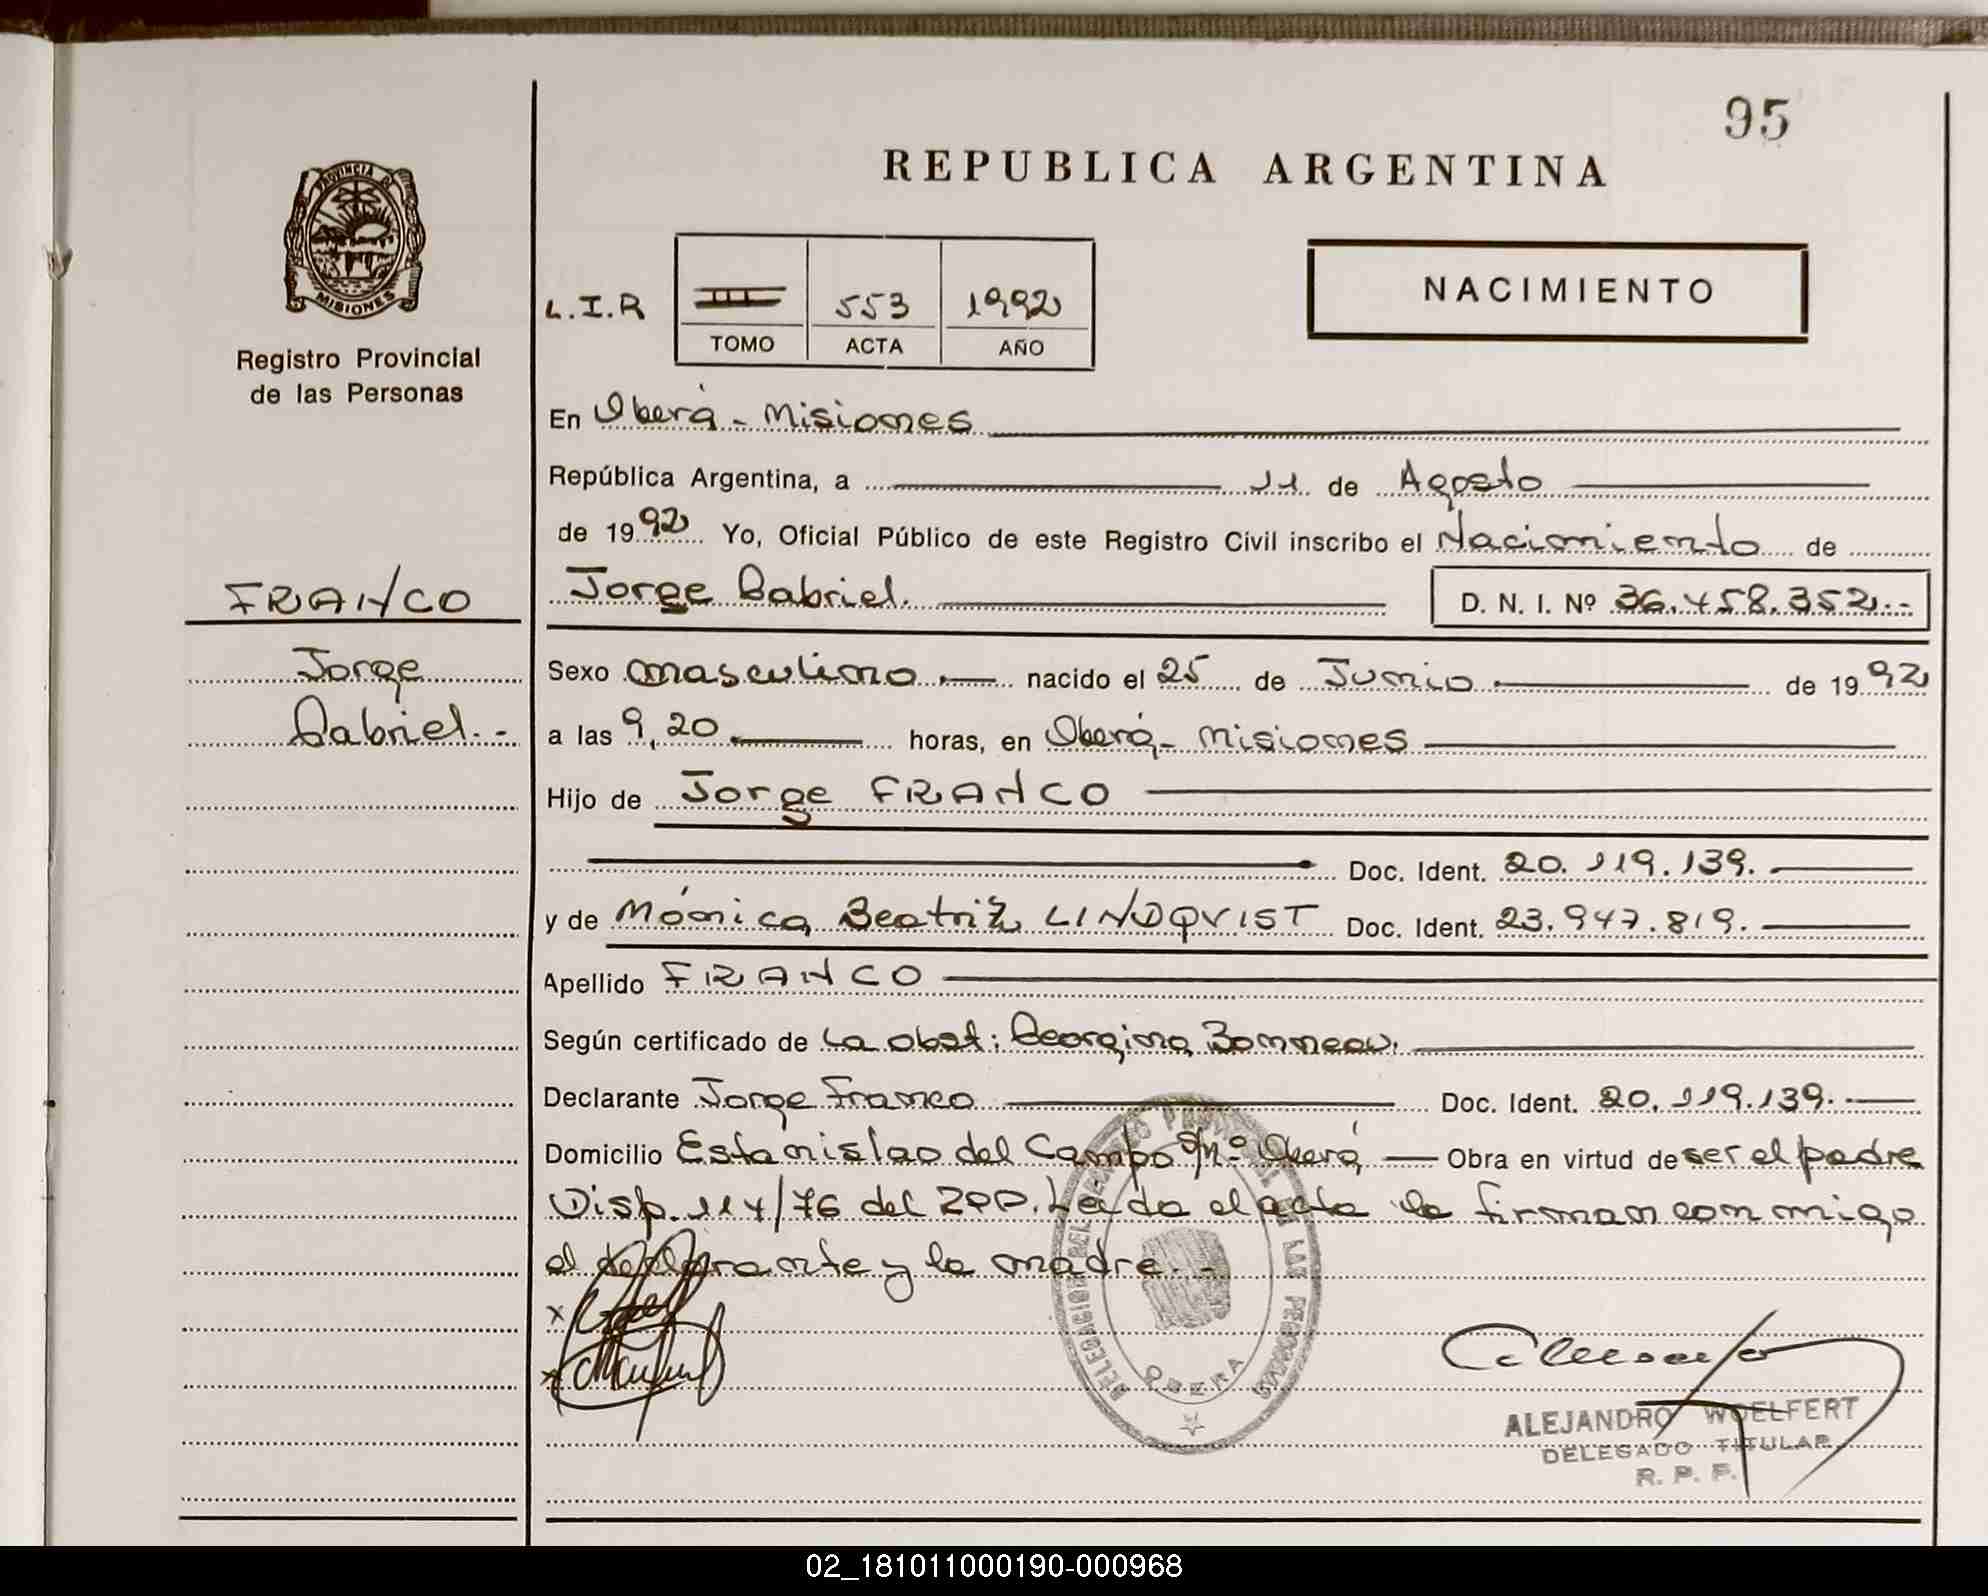 95
REPUBLICA ARGENTINA
PROVINCIA DE
MISIONES
Registro Provincial
de las Personas
NACIMIENTO
L.I.R III 553 1992
TOMO ACTA AÑO
En Oberá - Misiones
República Argentina, a 11 de Agosto
de 1992 Yo, Oficial Público de este Registro Civil inscribo el Nacimiento de
FRANCO
Jorge
Gabriel.-
Jorge Gabriel. D. N. I. Nº 36.458.352.-
Sexo masculino nacido el 25 de Junio de 1992
a las 9,20 horas, en Oberá - Misiones
Hijo de Jorge FRANCO
Doc. Ident. 20.119.139.
y de Mónica Beatriz LINDQVIST Doc. Ident. 23.947.819.
Apellido FRANCO
Según certificado de La obst: Georgina Bonneau.
Declarante Jorge Franco Doc. Ident. 20.119.139.
Domicilio Estanislao del Campo S/Nº Oberá Obra en virtud de ser el padre
Disp. 114/76 del RPP. Leída el acta la firman conmigo
el declarante y la madre.-
DELEGACION DEL REGISTRO PROVINCIAL DE LAS PERSONAS
OBERA
ALEJANDRO WOELFERT
DELEGADO TITULAR
R. P. P.
02_181011000190-000968